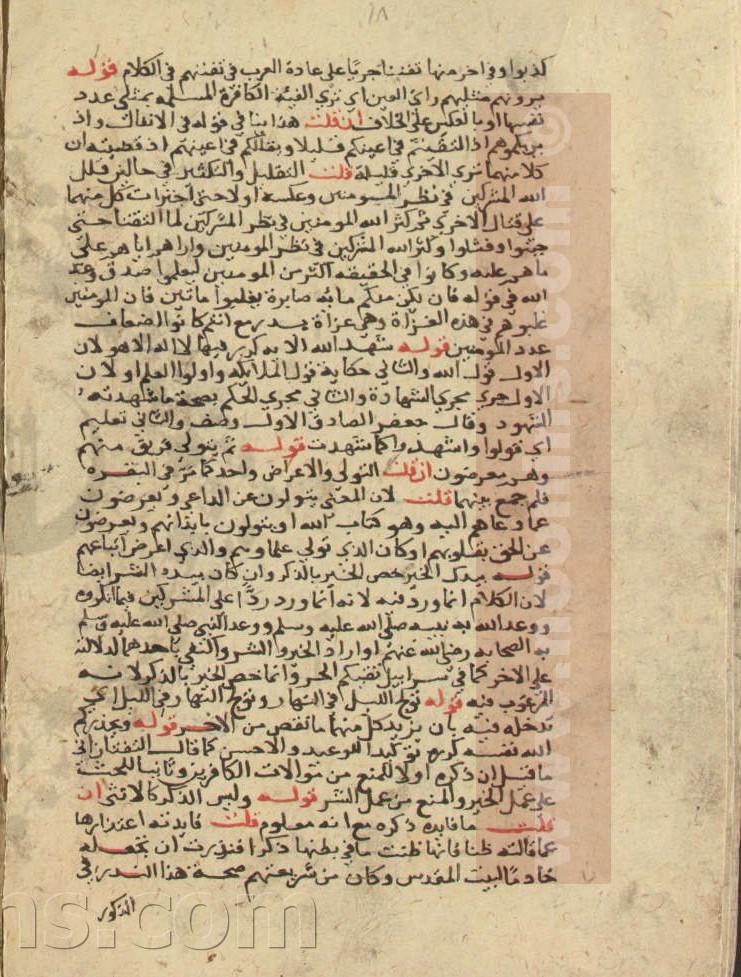 ١٨
كذبوا وفي اخر منها تفننا جريا على عادة العرب في تفننهم في الكلام قوله
يرونهم مثليهم راي العين اي تري الفية الكافرة المسلمة بمثلي عدد
نفسها او بالعكس على الخلاف ان قلت هذا ينافي قوله في الانفال واذ
يريكموهم اذ التقيتم في اعينكم قليلا ويقللكم في اعينهم اذ قضيته ان
كلا منهما تري الاخري قليلة قلت التقليل والتكثير في حالين قلل
الله المشركين في نظر المومنين وعكسه اولا حتى اجترات كل منهما
على قتال الاخري ثم كثر الله المومنين في نظر المشركين لما التقتا حتى
جبنوا وفشلوا وكثر الله المشركين في نظر المومنين واراهم اياهم على
ما هم عليه وكانوا في الحقيقه اكثر من المومنين ليعلموا صدق وعد
الله في قوله فان يكن منكم مايه صابرة يغلبوا ماتين فان المومنين
غلبوهم في هذه الغزاة وهي غزاة بدر مع انهم كانوا اضعاف
عدد المومنين قوله شهد الله الايه كرر فيها لا اله الا هو لان
الاول قول الله والثاني حكاية قول الملايكه واولوا العلم او لان
الاول جري مجري الشهادة والثاني مجري الحكم بصحة ما شهدت به
الشهود وقال جعفر الصادق الاول وصف والثاني تعليم
اي قولوا واشهدوا كما شهدت قوله ثم يتولى فريق منهم
وهم معرضون ان قلت التولي والاعراض واحد كما مر في البقره
فلم جمع بينهما قلت لان المعنى يتولون عن الداعي ويعرضون
عما دعاهم اليه وهو كتاب الله او يتولون بابدانهم ويعرضون
عن الحق بقلوبهم او كان الذي تولي علماوهم والذي اعرض اتباعهم
قوله بيدك الخير خص الخير بالذكر وان كان بيده الشر ايضا
لان الكلام انما ورد فيه لانه انما ورد ردا على المشركين فيما انكروه
ووعد الله به نبيه صلى الله عليه وسلم ووعد النبي صلى الله عليه وسلم
به الصحابه رضي الله عنهم او اراد الخير والشر واكتفي باحدهما لدلالته
على الاخر كما في سرابيل تقيكم الحر وانما خص الخير بالذكر لانه
المرغوب فيه قوله تولج الليل في النهار وتولج النهار في الليل اي
تدخله فيه بان يزيد كل منهما ما نقص من الاخر قوله ويحذركم
الله نفسه كرره توكيدا للوعيد والاحسن كما قال التفتازاني
ما قيل ان ذكره اولا للمنع من موالات الكافرين وثانيا للحث
على عمل الخير والمنع من عمل الشر قوله وليس الذكر كالانثى ان
قلت ما فايدة ذكره مع انه معلوم قلت فايدته اعتذارها
عما قالته ظنا فانها ظنت ما في بطنها ذكرا فنذرت ان تجعله
خادما لبيت المقدس وكان من شريعتهم صحة هذا النذر في
الذكور
ns.com